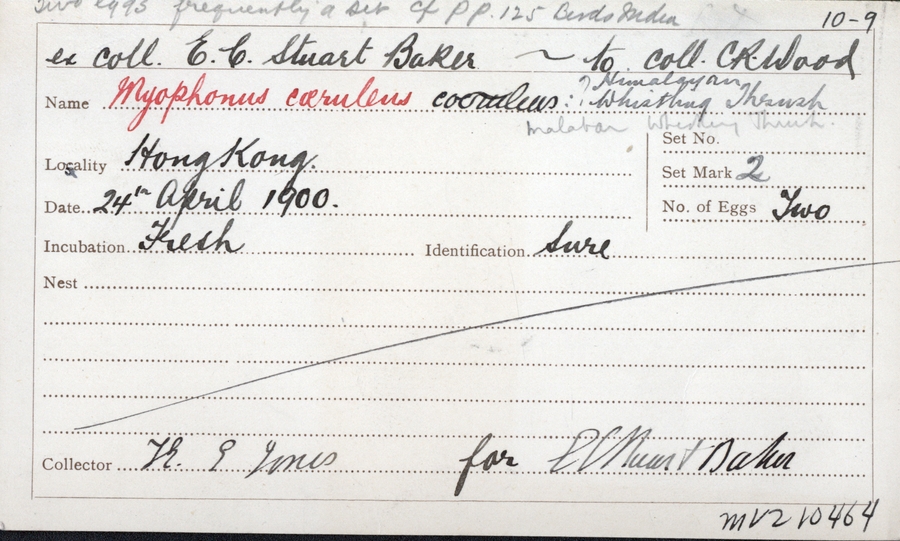 Two eggs frequently a set cf pp. 125 Birds India
10-9
ex coll. E. C. Stuart Baker ~ to coll. C R Wood
Name Myophonus cœruleus coeruleus: ? Himalayan Whistling Thrush
Malabar Whistling Thrush.
Locality Hong Kong.
Set No.
Set Mark 2
Date 24th April 1900.
No. of Eggs Two
Incubation Fresh Identification Sure
Nest
Collector K. E Jones for E C Stuart Baker
MVZ 10464